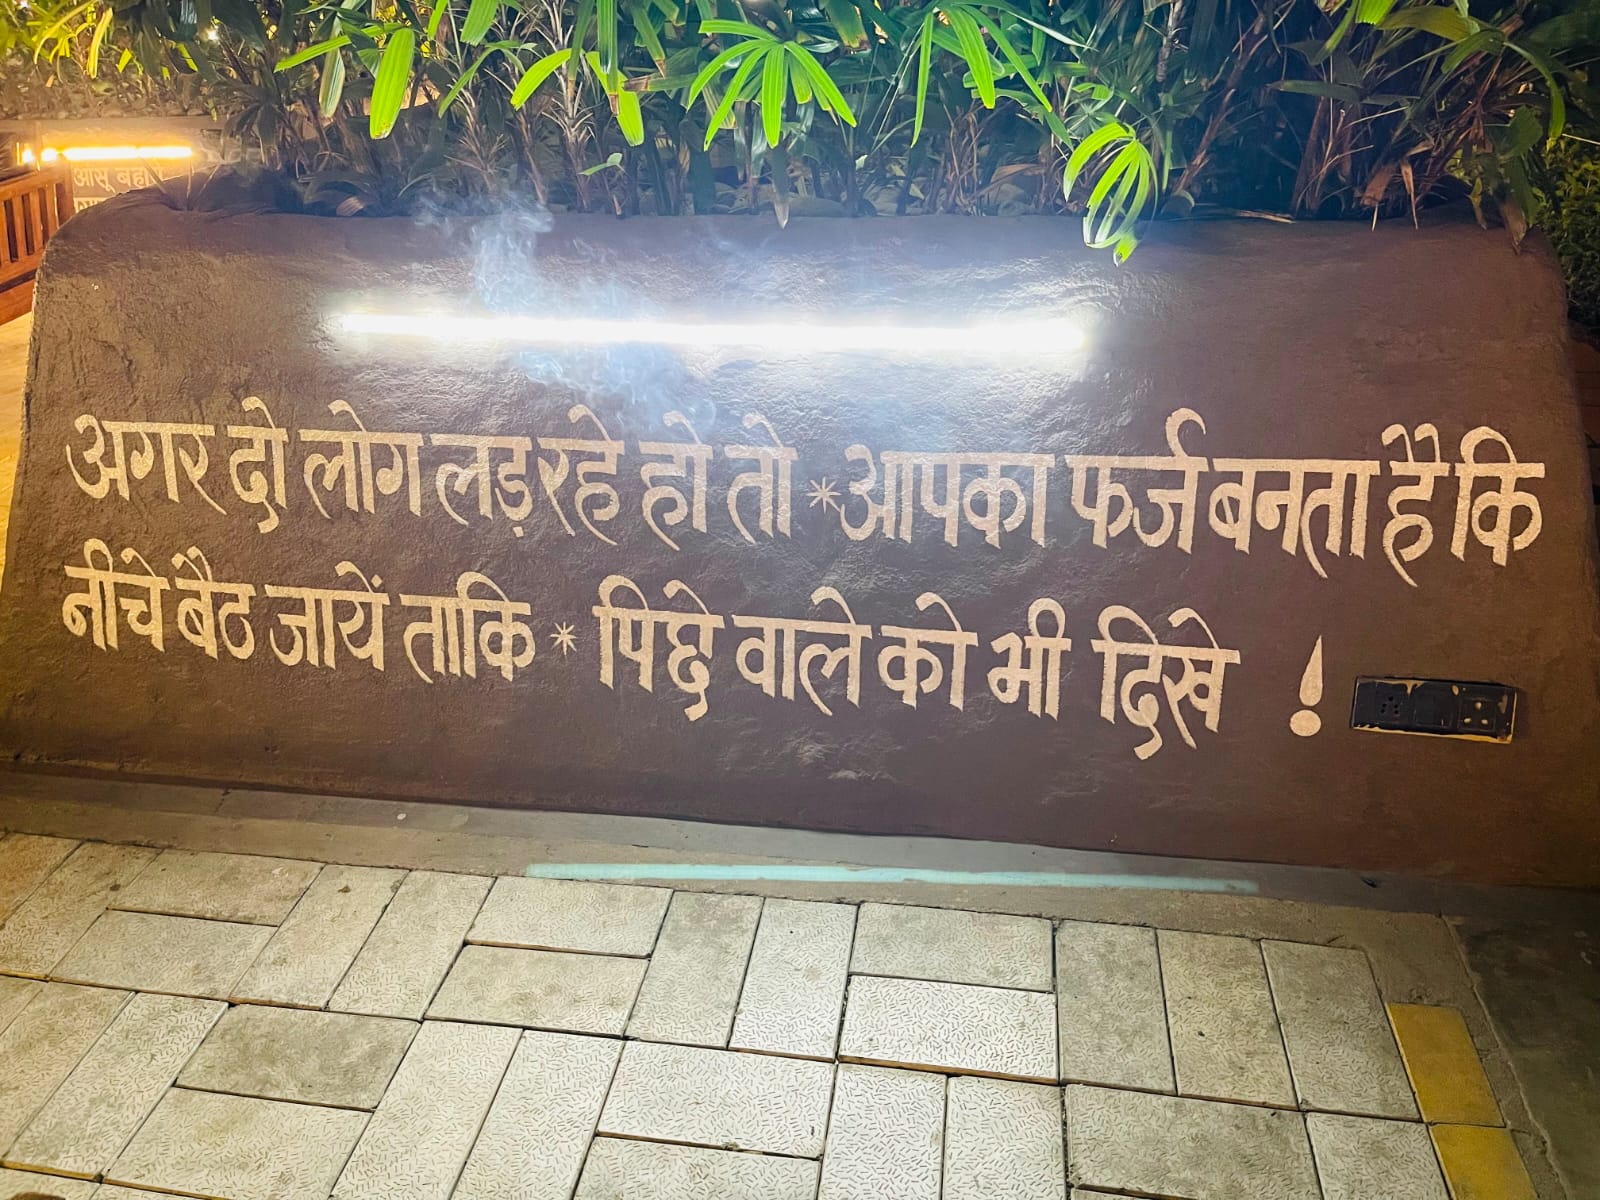 आसू बहा
अगर दो लोग लड़ रहे हो तो * आपका फर्ज बनता है कि
नीचे बैठ जायें ताकि * पिछे वाले को भी दिखे !